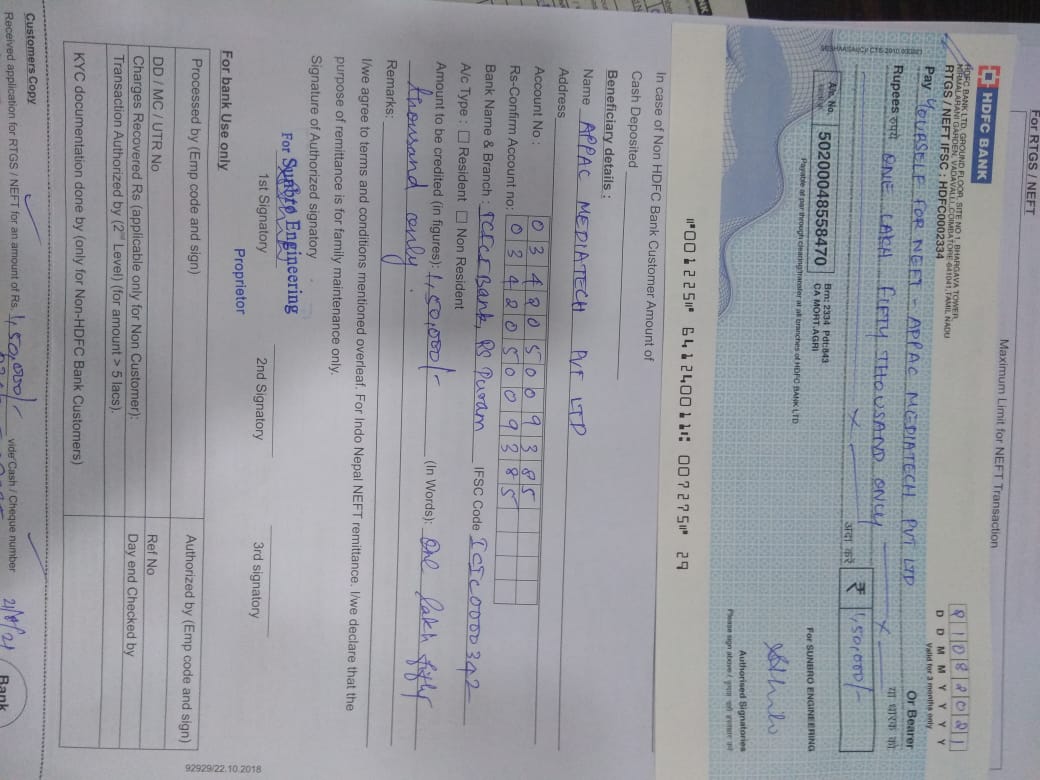 For RTGS / NEFT
Maximum Limit for NEFT Transaction
HDFC BANK
HDFC BANK LTD, GROUND FLOOR, SITE NO 1, BHARGAVA TOWER,
NIRMALARANI GARDEN, VADAVALLI, COIMBATORE-641041, TAMIL NADU
RTGS / NEFT IFSC : HDFC0002334
21082021
D D M M Y Y Y Y
Valid for 3 months only
Pay YOURSELF FOR NEFT APPAC MEDIATECH PVT LTD
Or Bearer
या धारक को
Rupees रुपये ONE LAKH FIFTY THOUSAND ONLY x x
अदा करें ₹ 1,50,000/-
A/c. No. 50200048558470
Brn: 2334 Pdt:843
CA MORT.AGRI
For SUNBRO ENGINEERING
Payable at par through clearing/transfer at all branches of HDFC BANK LTD
Authorised Signatories
Please sign above /
"001225" 641240011: 007275" 29
In case of Non HDFC Bank Customer Amount of
Cash Deposited
Beneficiary details :
Name APPAC MEDIATECH PVT LTD
Address
Account No : 034205009385
Rs-Confirm Account no: 034205009385
Bank Name & Branch : ICICI Bank, RS Puram IFSC Code ICIC0000342
A/c Type : □ Resident □ Non Resident
Amount to be credited (in figures): 1,50,000/- (In Words): One lakh fifty
thousand only.
Remarks:
I/we agree to terms and conditions mentioned overleaf. For Indo Nepal NEFT remittance. I/we declare that the
purpose of remittance is for family maintenance only.
Signature of Authorized signatory
For Sunbro Engineering
1st Signatory 2nd Signatory 3rd signatory
Proprietor
For bank Use only
Processed by (Emp code and sign) Authorized by (Emp code and sign)
DD / MC / UTR No Ref No
Charges Recovered Rs (applicable only for Non Customer): Day end Checked by
Transaction Authorized by (2nd Level) (for amount > 5 lacs).
KYC documentation done by (only for Non-HDFC Bank Customers)
92929/22.10.2018
Customers Copy
Received application for RTGS / NEFT for an amount of Rs. 1,50,000/- vide Cash / Cheque number
21/8/21
Bank